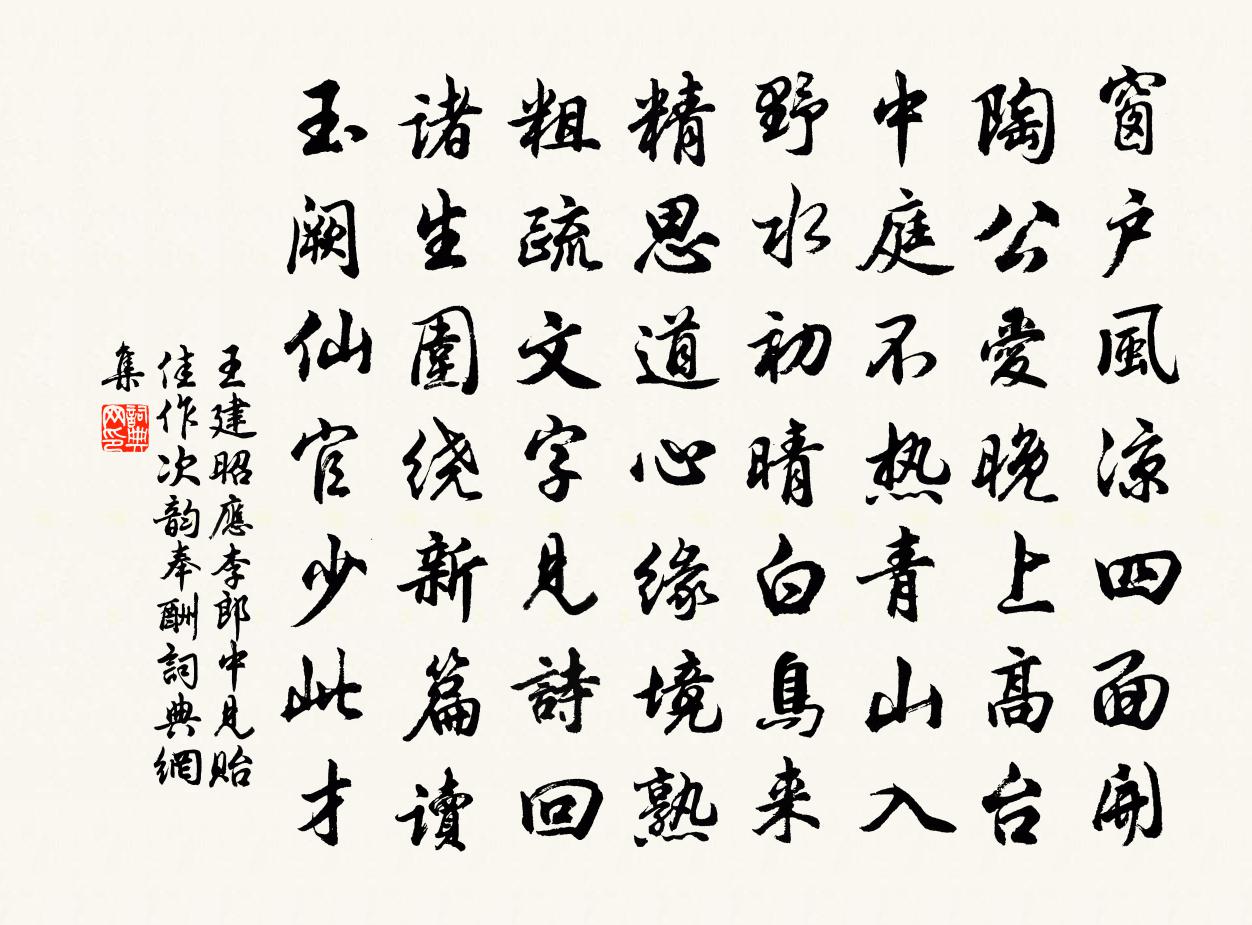 窗户風凉四面開
陶公愛晚上高台
中庭不热青山入
野水初晴白鳥来
精思道心緣境熟
粗疏文字見詩回
诸生圍绕新篇读
玉阙仙官少此才
王建昭應李郎中見貽
佳作次韵奉酬詞典網
集
詞典网印